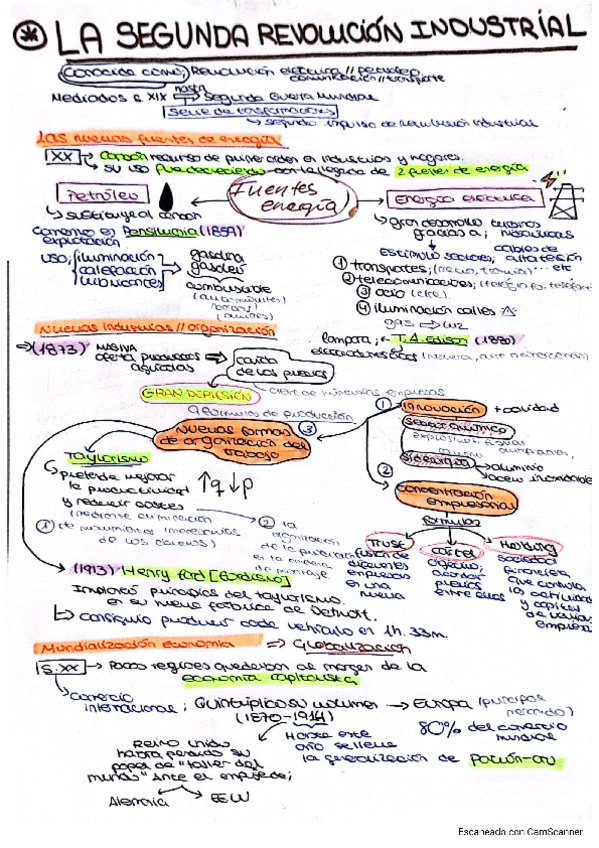 LA SEGUNDA REVOLUCIÓN INDUSTRIAL
Conocida como; Revolución eléctrica // petróleo
comunicación // transporte
Mediados s. XIX hasta Segunda Guerra Mundial
Serie de transformaciones
segundo impulso de revolución industrial
Las nuevas fuentes de energía
XX carbón recurso de primer orden en industrias y hogares.
su uso fue decreciendo con la llegada de 2 fuentes de energía
Petróleo
Fuentes energía
Energía eléctrica
sustituye al carbón
Comenzó en Pensilvania (1859)
explotación
uso; iluminación
calefacción
lubricantes
gasolina
gasoleo
combustible
(automóviles)
(barcos)
(aviones)
gran desarrollo turbinas
gracias a; hidraúlicas
cables de
alta tensión
Estímulo sectores;
1 transportes; (metro, tranvía) ... etc
2 telecomunicaciones; (telégrafo, teléfono)
3 ocio (cine)
4 iluminación calles
gas → luz
lampara; T.A. Edison (1880)
Nuevas industrias // organización
(1873) MASIVA
oferta productos
agrícolas
caída
de los precios
GRAN DEPRESIÓN
cierre de numerosas empresas
fórmulas de producción
1 innovación + calidad
sector químico
siderurgia
aluminio
acero inoxidable
2 concentración
empresarial
fórmulas
3 Nuevas formas
de organización del
trabajo
Taylorismo
pretende mejorar
la productividad
y reducir costes
(mediante eliminación
1 de movimientos innecesarios
de los obreros)
↑q ↓p
2 la
organización
de la producción
en la cadena
de montaje.
Trust
fusión de
diferentes
empresas
en una
nueva
Cártel
acordar
precios
entre ellos
Holding
sociedad
financiera
que controla
las actividades
y capital
de varias
empresas
(1913) Henry Ford [Fordismo]
Implantó principios del taylorismo
en su nueva fábrica de Detroit.
consiguió producir cada vehículo en 1h. 33m.
Mundialización economía ⇒ Globalización
S.XX → Pocas regiones quedaban al margen de la
economía capitalista
comercio
internacional; Quintiplicó su volumen → Europa (principal
mercado)
(1870-1914)
80% del comercio
mundial
Hasta este
año se lleva
la generalización de patrón-oro
Reino Unido
había perdido su
papel de "taller del
mundo" Ante el empuje de;
Alemania
EEUU
Escaneado con CamScanner